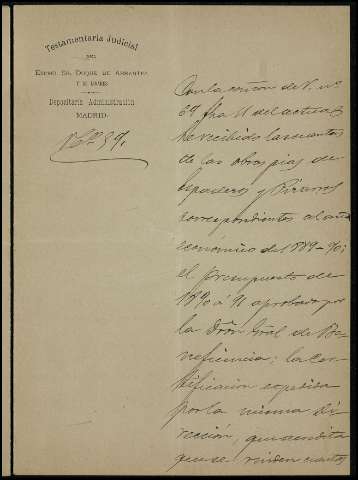 Testamentaría Judicial
DEL
EXCMO SR. DUQUE DE ABRANTES
Y DE LINARES
Depositaría Administración
MADRID.
Nº 39.
Con la comón de V. nº
69 fha 11 del actual
he recibido las cuentas
de las obras pias de
y Pizarro
correspondientes al año
económico de 1889-90;
el presupuesto de
1890 á 91 aprobado por
la Dºn Gral de Be-
neficencia; la Cer-
tificacion expedida
por la misma Di-
rección, que acredita
que se rinden cuentas